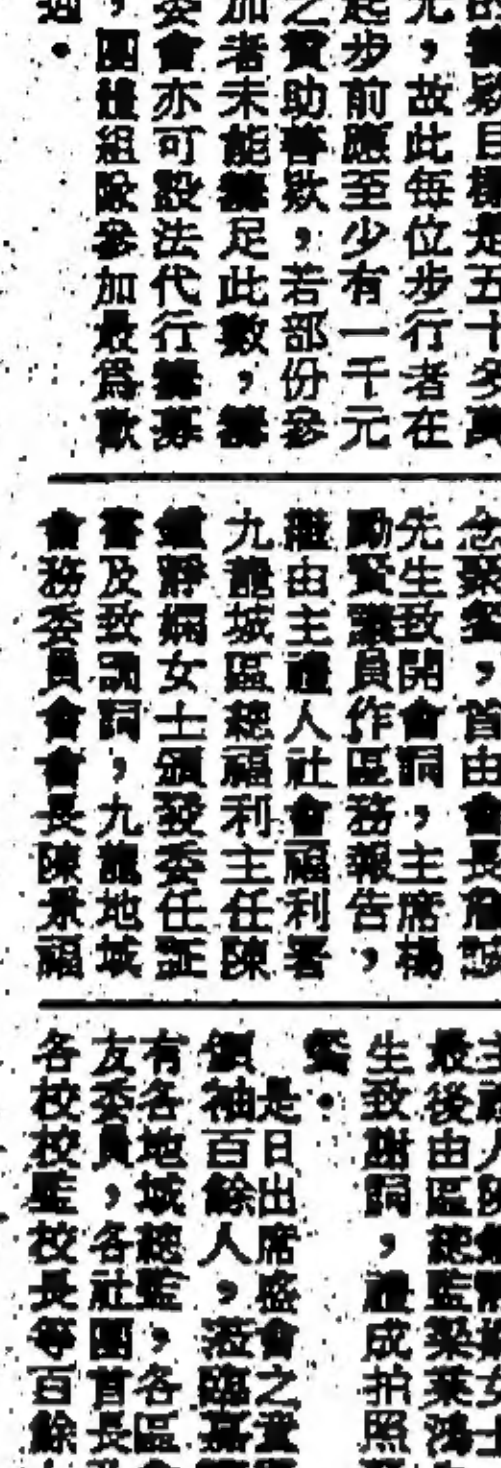 故籌欵目標是五十多萬
元，故此每位步行者在
起步前應至少有一千元
之贊助善欵，若部份參
加者未能籌足此數，籌
委會亦可設法代行籌募
，團體組隊參加最爲歡
迎。
念聚餐，首由會長詹
先生致開會詞，主席楊
勵賢議員作區務報告，
繼由主禮人社會福利署
九龍城區總福利主任陳
鍾靜嫻女士頒發委任証
書及致訓詞，九龍地域
會務委員會會長陳景福
主禮人陳鍾靜嫻女士
最後由區總監梁秉鴻
生致謝詞，禮成拍照
餐。
是日出席盛會之童
領袖百餘人，蒞臨嘉
有各地域總監，各區
友委員，各社團首長
各校校監校長等百餘